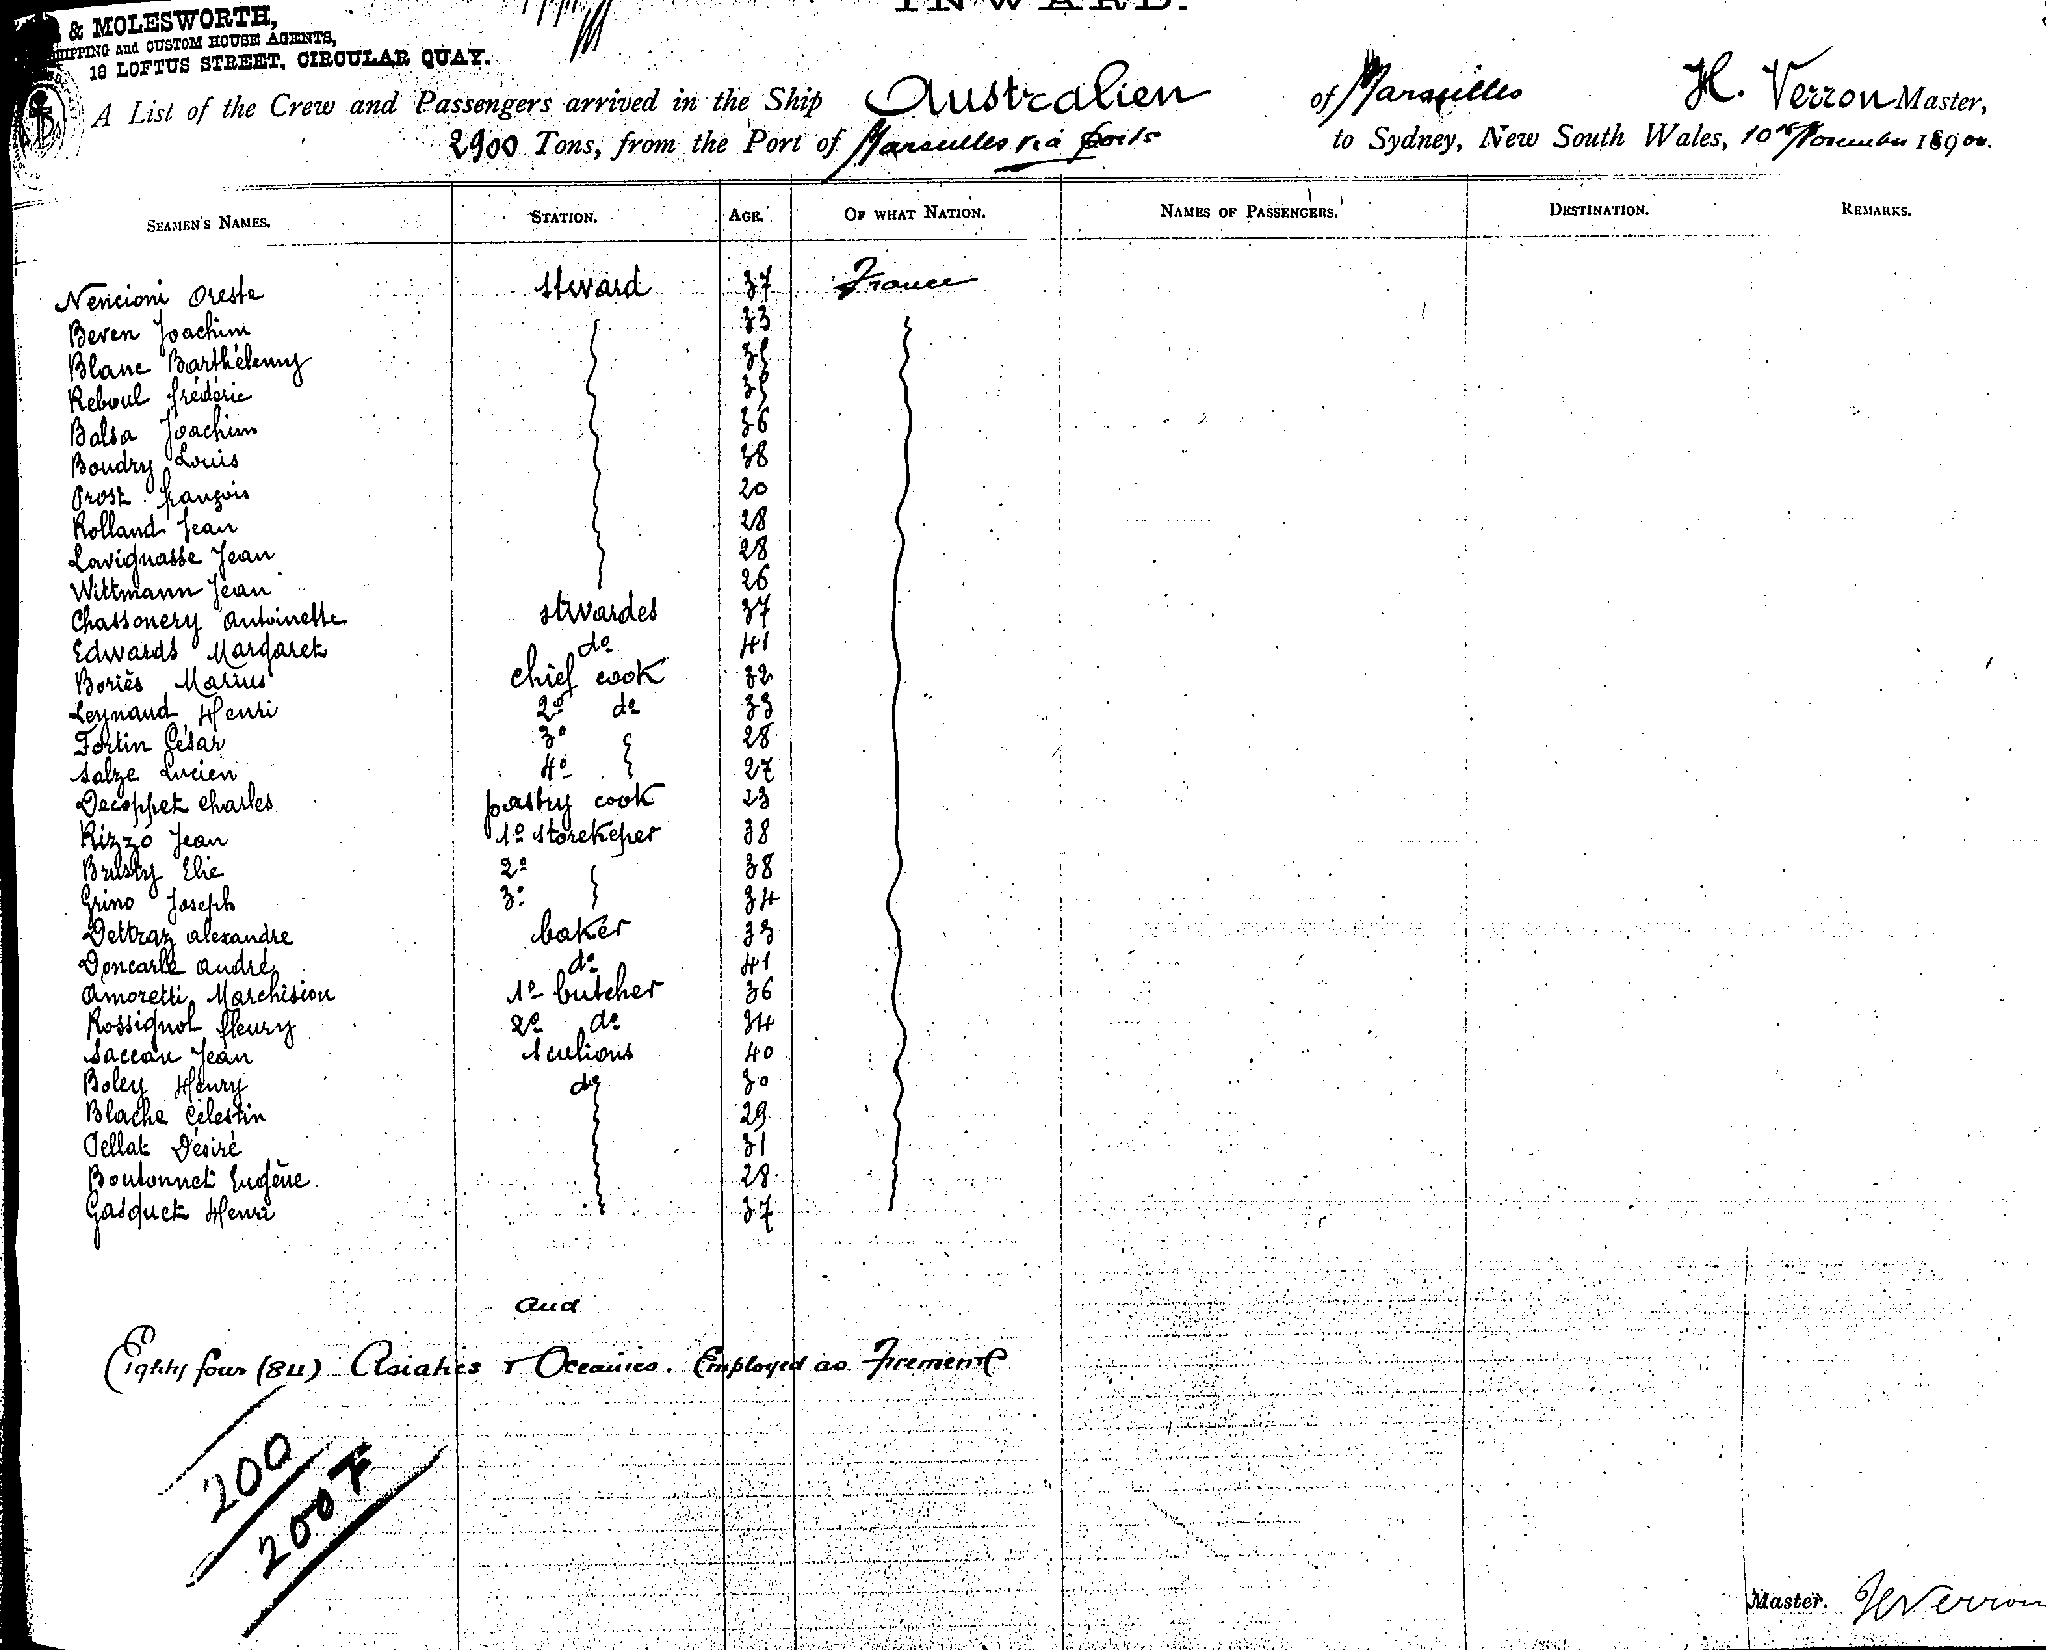 INWARD.
& MOLESWORTH,
SHIPPING and CUSTOM HOUSE AGENTS,
18 LOFTUS STREET, CIRCULAR QUAY.
A List of the Crew and Passengers arrived in the Ship Australien of Marseilles H. Verron Master,
2900 Tons, from the Port of Marseilles via ports to Sydney, New South Wales, 10th November 1900.
SEAMEN'S NAMES. STATION. AGE. OF WHAT NATION. NAMES OF PASSENGERS. DESTINATION. REMARKS.
Nencioni Oreste steward 37 France
Beven Joachim 33
Blanc Barthélemy 35
Reboul frédéric 35
Balsa Joachim 36
Boudry Louis 38
Prost françois 20
Rolland Jean 28
Lavignasse Jean 28
Wittmann Jean 26
Chassonery Antoinette stwardes 37
Edwards Margaret do 41
Boriès Marius chief cook 32
Leynaud Henri 2o do 33
Fortin César 3o 28
Salze Lucien 4o 27
Decoppet Charles pastry cook 23
Rizzo Jean 1o storekeper 38
Brusty Elie 2o 38
Grino Joseph 3o 34
Dettraz alexandre baker 33
Doncarle andré do 41
Amoretti Marchision 1o butcher 36
Rossignol fleury 2o do 34
Saccau Jean sculions 40
Boley Henry do 30
Blache Célestin 29
Pellat Désiré 31
Boutonnet Eugène 28
Gasquet Henri 37
and
Eighty four (84) Asiatics & Oceanics. Employed as Firemen &c
200
200 F
Master. H Verron